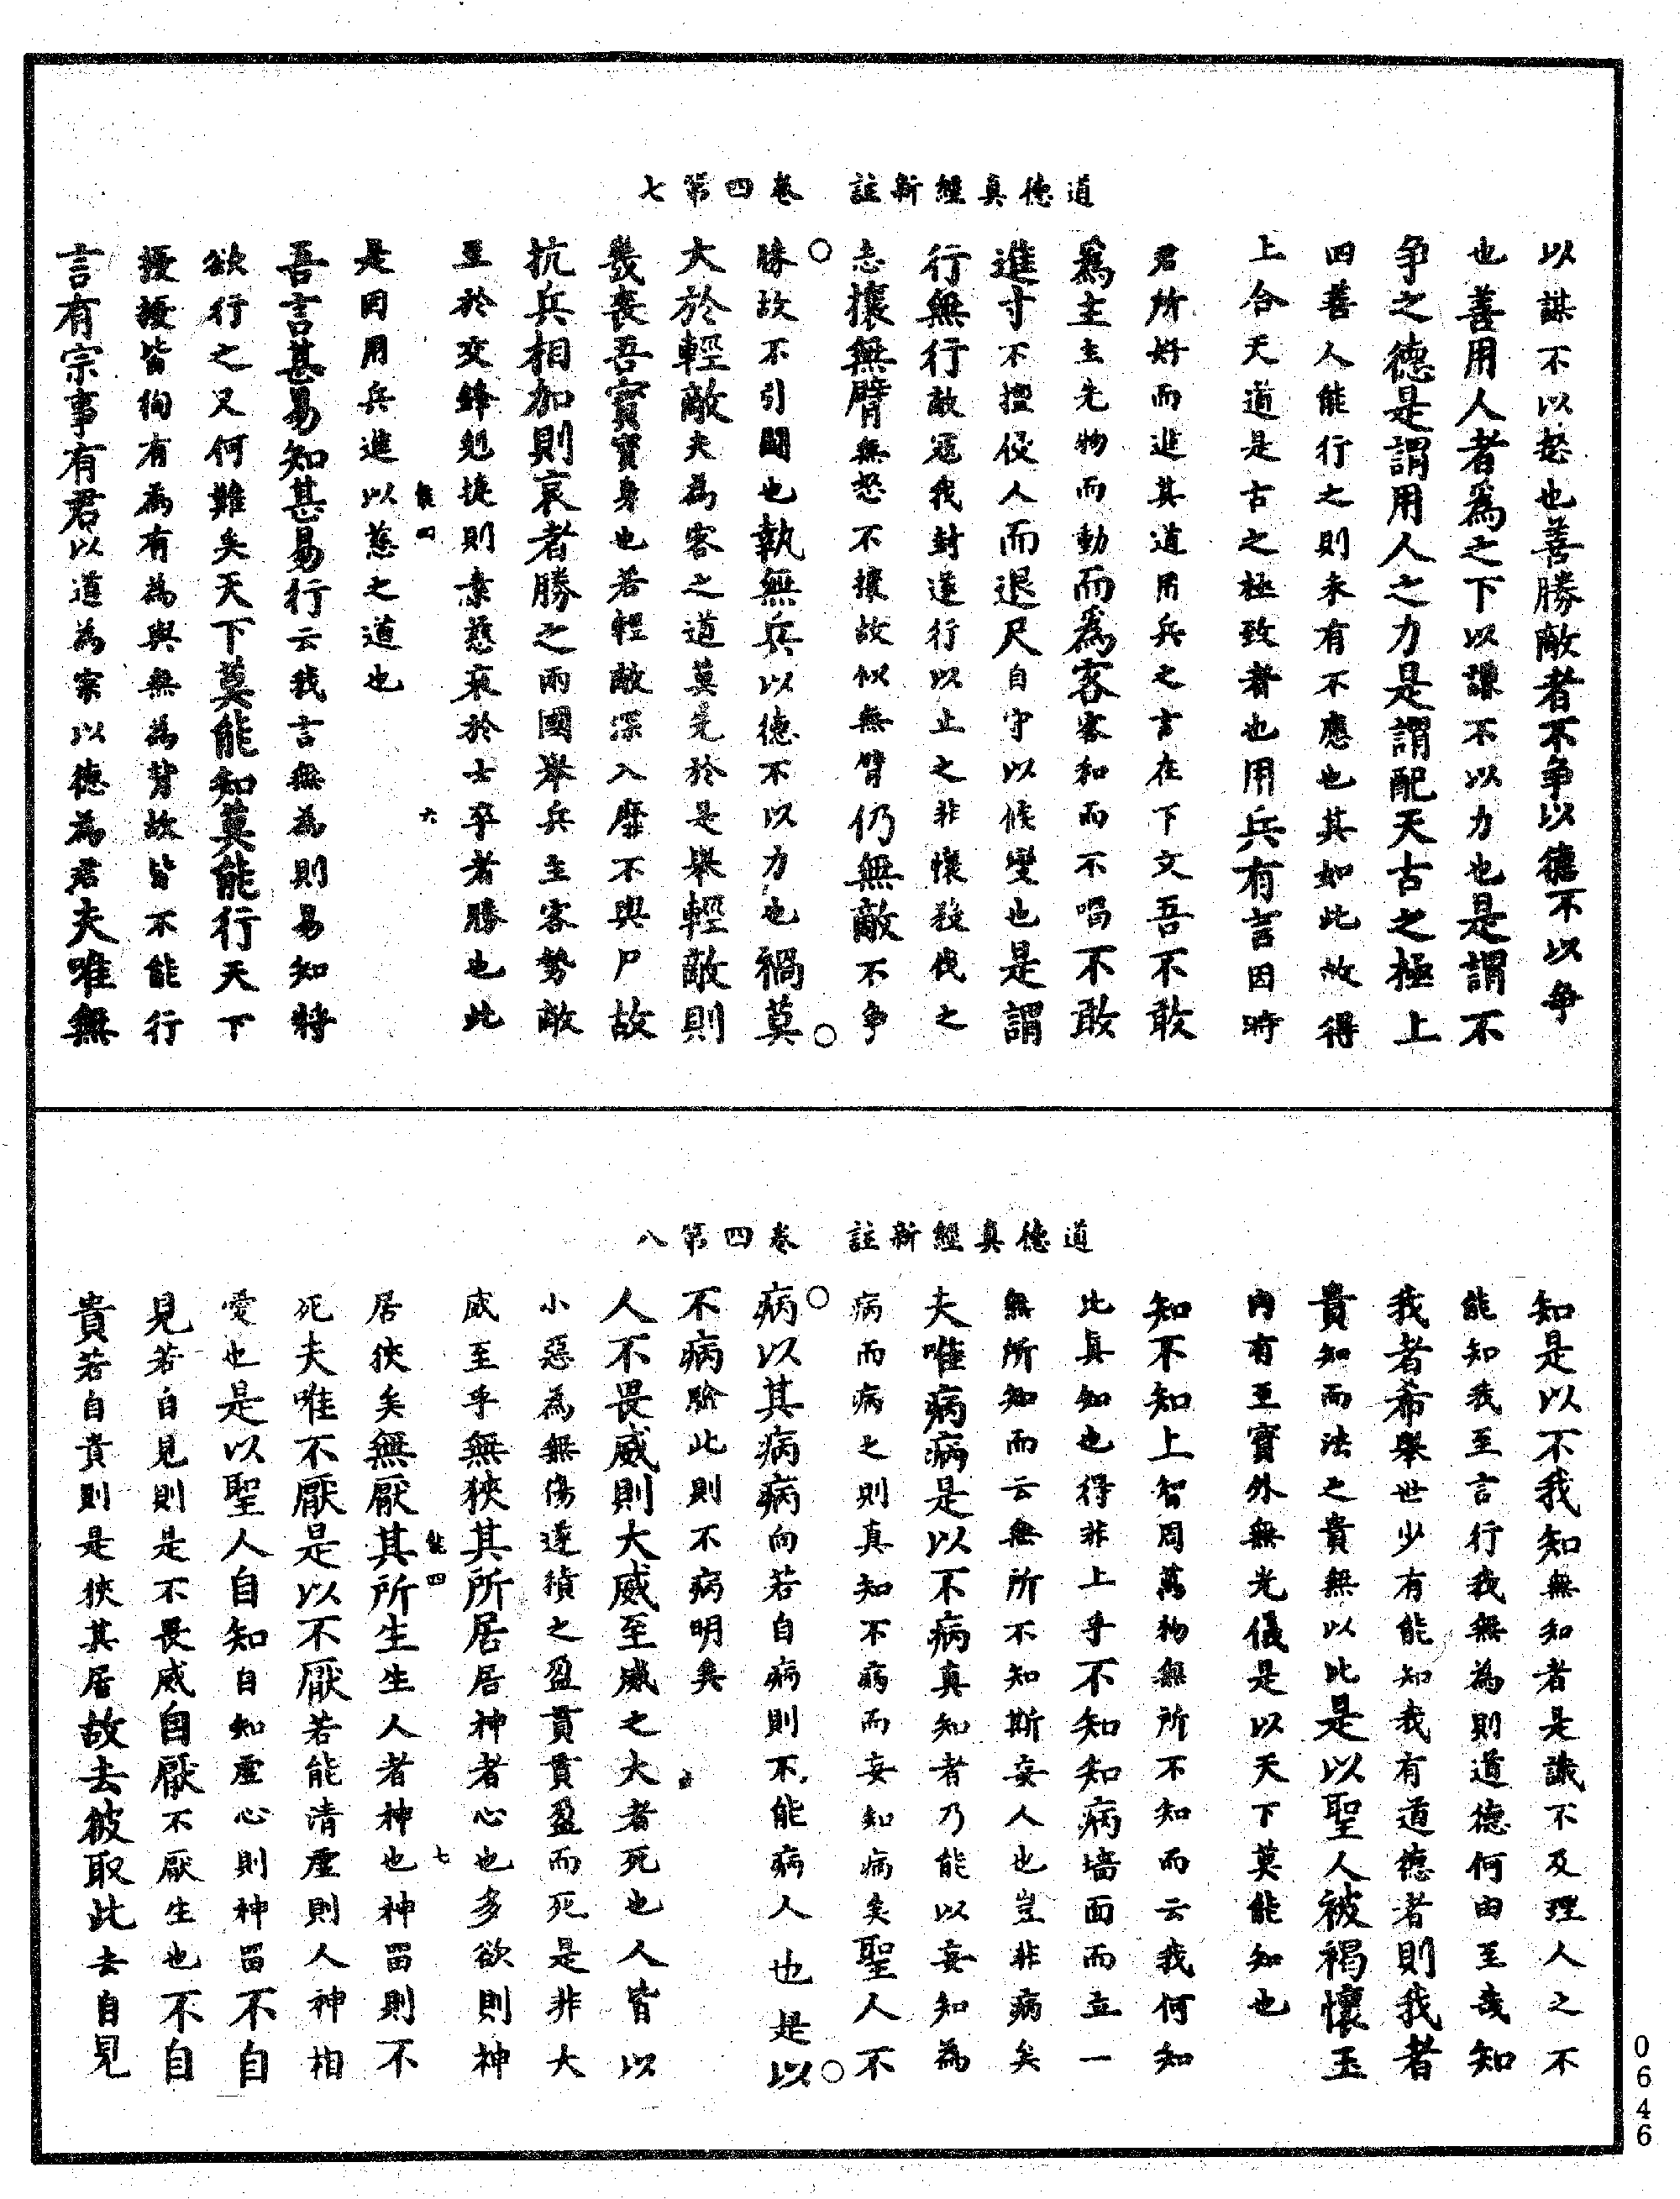 道德真經新註　卷四第七
以謀不以怒也善勝敵者不爭以德不以爭
也善用人者爲之下以謙不以力也是謂不
爭之德是謂用人之力是謂配天古之極上
四善人能行之則未有不應也其如此故得
上合天道是古之極致者也用兵有言因時
君所好而進其道用兵之言在下文吾不敢
爲主主先物而動而爲客客和而不唱不敢
進寸不擅侵人而退尺自守以候變也是謂
行無行敵寇我封遂行以止之非懷殺伐之
志攘無臂無怒不攘故似無臂仍無敵不爭
勝故不引鬪也執無兵以德不以力也禍莫
大於輕敵夫為客之道莫先於是舉輕敵則
幾喪吾寶寶身也若輕敵深入靡不輿尸故
抗兵相加則哀者勝之兩國舉兵主客勢敵
至於交鋒剋捷則素慈哀於士卒者勝也此
能四　六
是因用兵進以慈之道也
吾言甚易知甚易行云我言無為則易知將
欲行之又何難矣天下莫能知莫能行天下
擾擾皆徇有為有為與無為背故皆不能行
言有宗事有君以道為宗以德為君夫唯無
道德真經新註　卷四第八
知是以不我知無知者是識不及理人之不
能知我至言行我無為則道德何由至哉知
我者希舉世少有能知我有道德者則我者
貴知而法之貴無以比是以聖人被褐懷玉
內有至寶外無光儀是以天下莫能知也
知不知上智周萬物無所不知而云我何知
此真知也得非上乎不知知病墻面而立一
無所知而云無所不知斯妄人也豈非病矣
夫唯病病是以不病真知者乃能以妄知為
病而病之則真知不病而妄知病矣聖人不
病以其病病向若自病則不能病人也是以
不病驗此則不病明矣
人不畏威則大威至威之大者死也人皆以
小惡為無傷遂積之盈貫貫盈而死是非大
威至乎無狹其所居居神者心也多欲則神
能四　七
居狹矣無厭其所生生人者神也神畱則不
死夫唯不厭是以不厭若能清虛則人神相
愛也是以聖人自知自知虛心則神畱不自
見若自見則是不畏威自厭不厭生也不自
貴若自貴則是狹其居故去彼取此去自見
0646